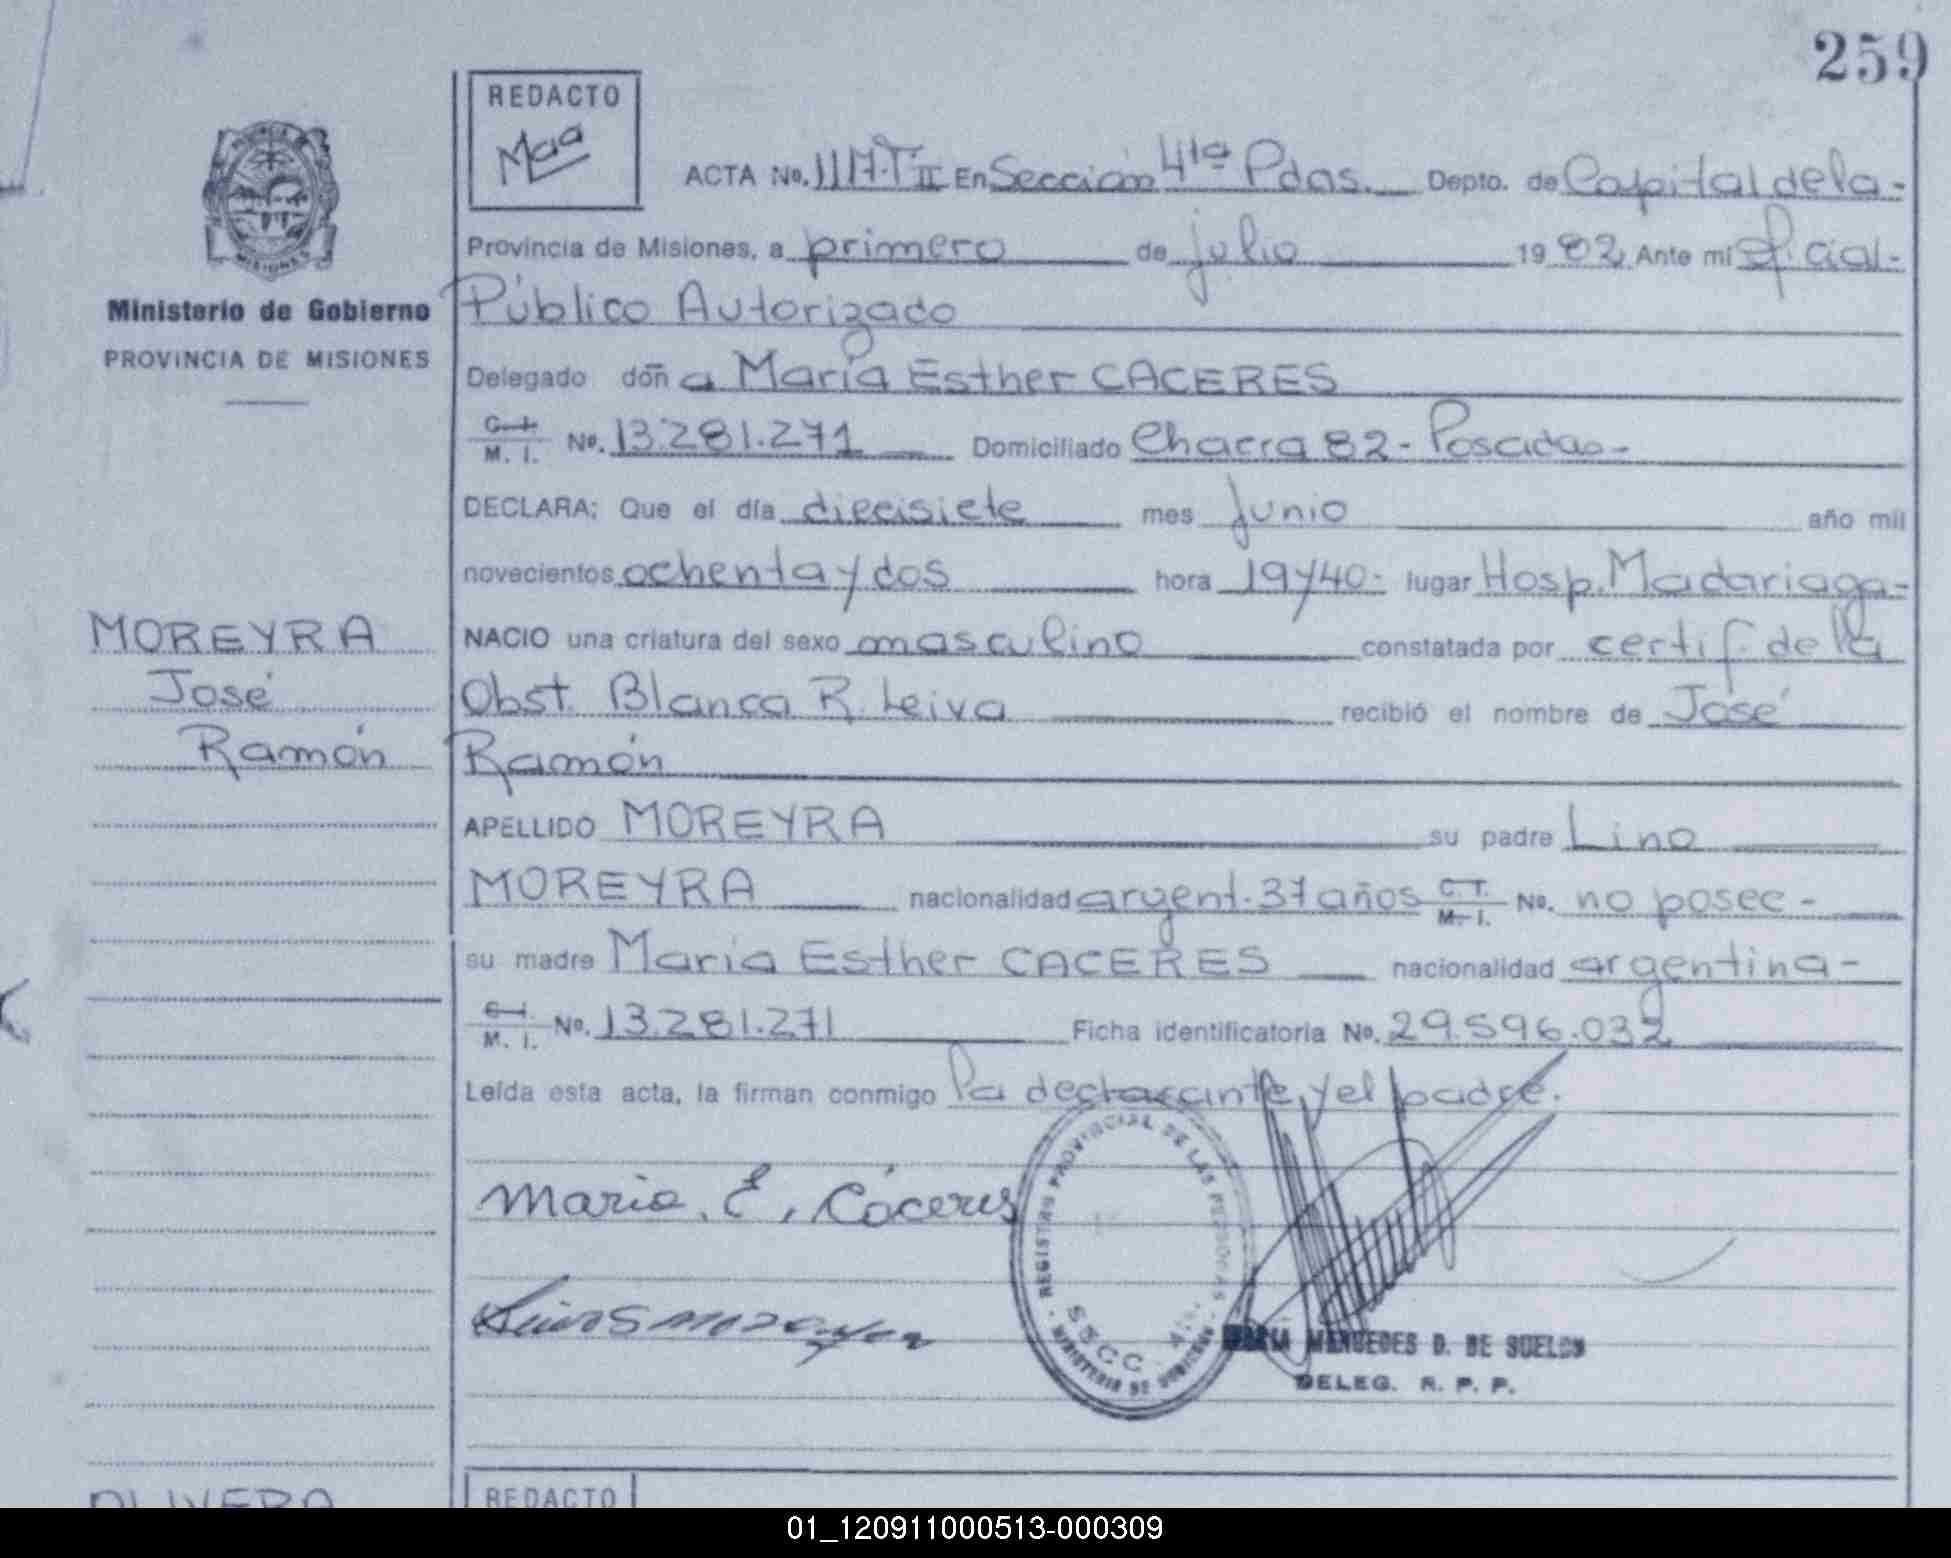 259
REDACTO
Maa
ACTA No. 1117.T II En Sección 4ta Pdas. Depto. de Capital de la-
Provincia de Misiones, a primero de julio 1982 Ante mi oficial-
Público Autorizado
Ministerio de Gobierno
PROVINCIA DE MISIONES
Delegado doñ a María Esther CACERES
C. I. M. I. No. 13.281.271 Domiciliado Chacra 82- Posadas-
DECLARA: Que el día diecisiete mes junio año mil
novecientos ochenta y dos hora 19y40- lugar Hosp. Madariaga-
MOREYRA
José
Ramón
NACIO una criatura del sexo masculino constatada por certif. de la
Obst. Blanca R. Leiva recibió el nombre de José
Ramón
APELLIDO MOREYRA su padre Lino
MOREYRA nacionalidad argent. 37 años C.I. M. I. No. no posee-
su madre María Esther CACERES nacionalidad argentina-
C. I. M. I. No. 13.281.271 Ficha identificatoria No. 29.596.032
Leída esta acta, la firman conmigo la declarante, y el padre.
Maria. E, Cáceres
REGISTRO PROVINCIAL DE LAS PERSONAS
SECC. 4ta.
MINISTERIO DE GOBIERNO
MARIA MERCEDES D. DE
DELEG. R. P. P.
OLIVERA
REDACTO
01_120911000513-000309